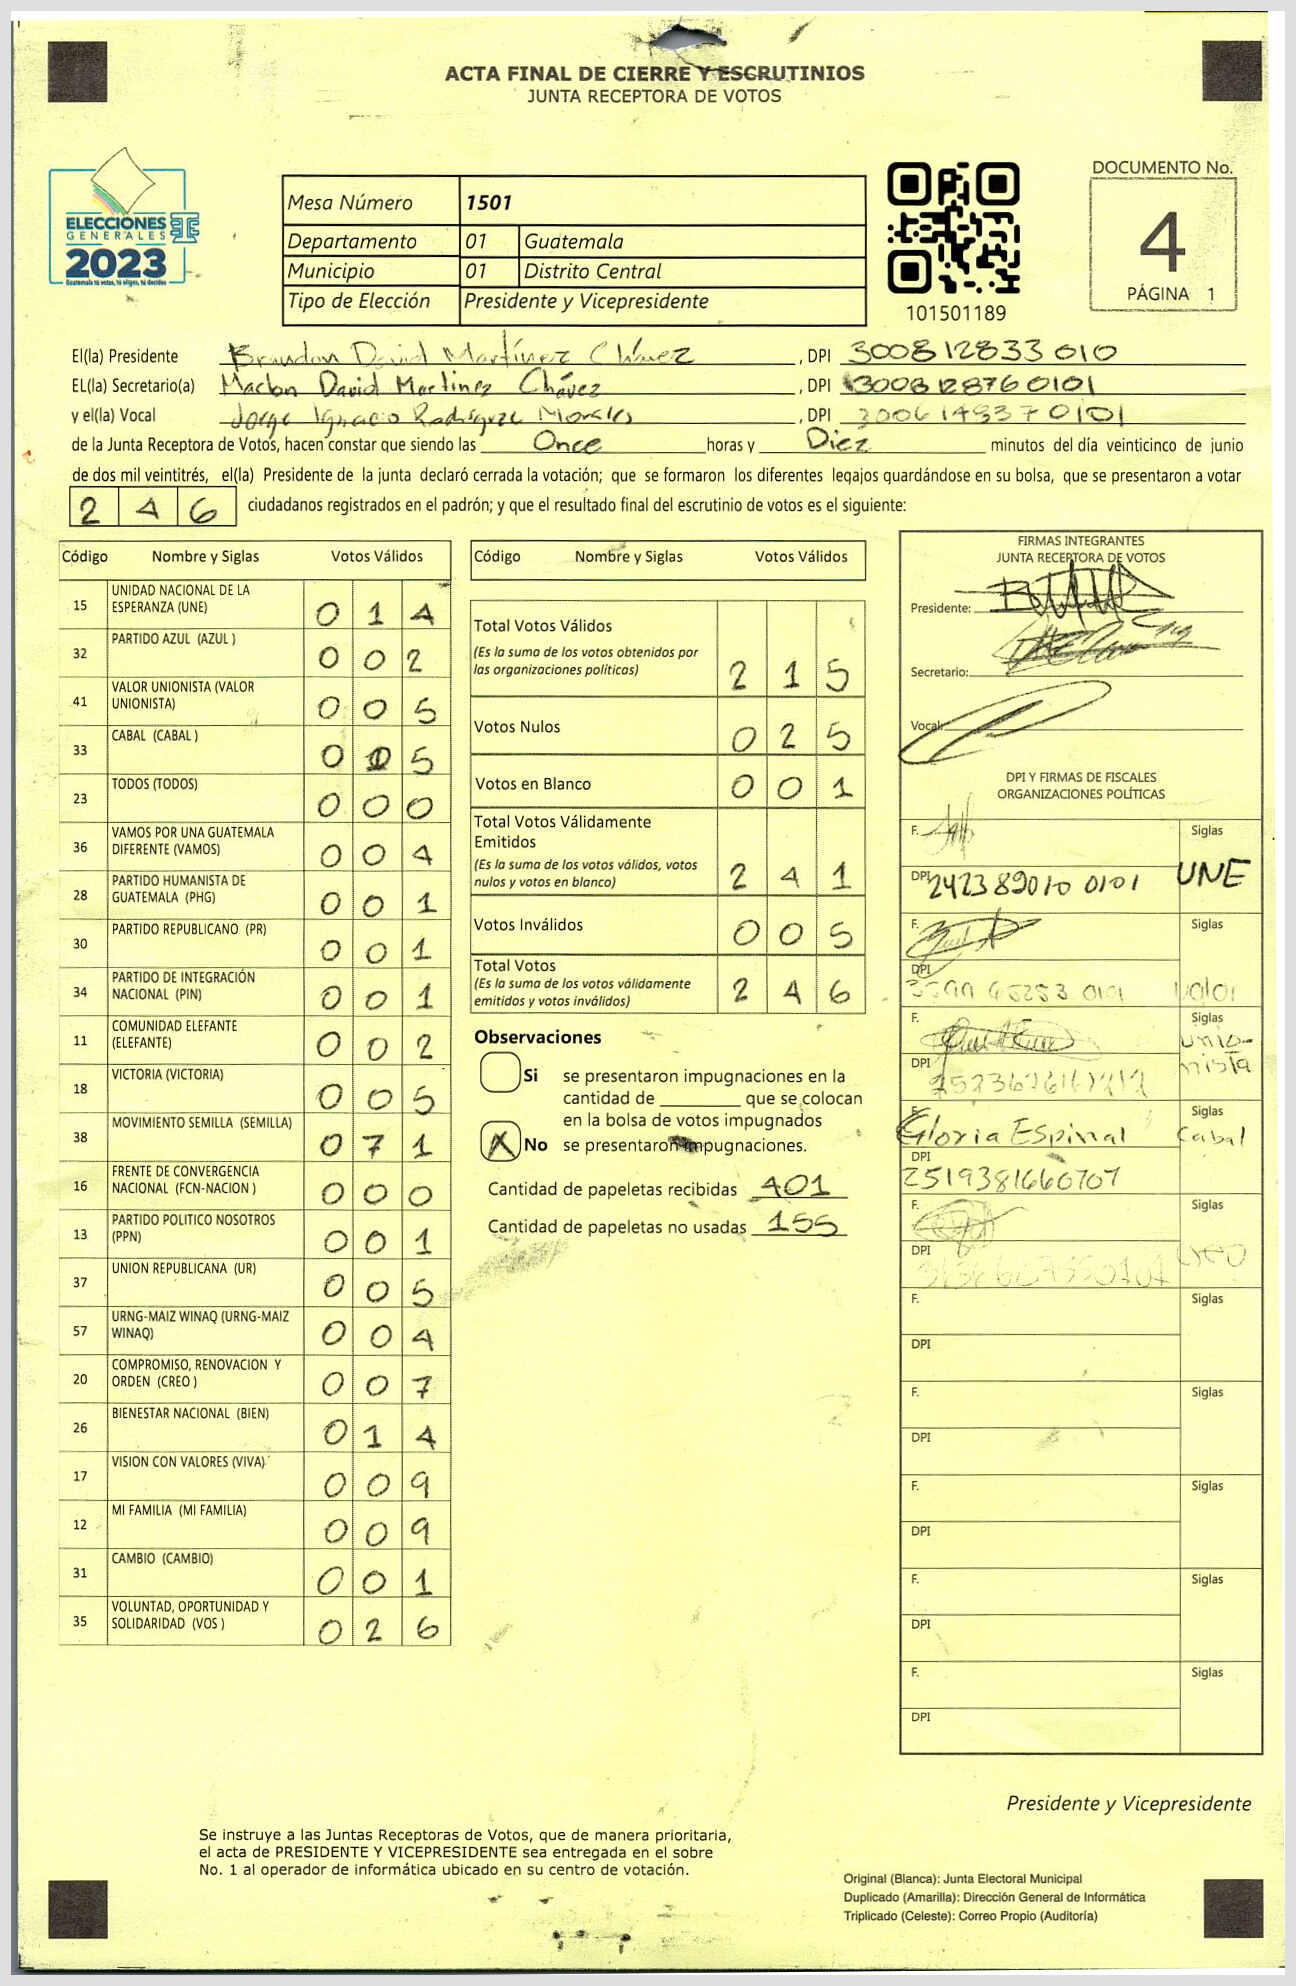 ACTA FINAL DE CIERRE Y ESCRUTINIOS
JUNTA RECEPTORA DE VOTOS
ELECCIONES
GENERALES
2023
Guatemala tú votas, tú eliges, tú decides
Mesa Número 1501
Departamento 01 Guatemala
Municipio 01 Distrito Central
Tipo de Elección Presidente y Vicepresidente
101501189
DOCUMENTO No.
4
PÁGINA 1
El(la) Presidente Brandon David Martínez Chávez , DPI 300812833 010
EL(la) Secretario(a) Marlon David Martinez Chávez , DPI 3008128760101
y el(la) Vocal Jorge Ignacio Rodríguez Morales , DPI 3006149370101
de la Junta Receptora de Votos, hacen constar que siendo las Once horas y Diez minutos del día veinticinco de junio
de dos mil veintitrés, el(la) Presidente de la junta declaró cerrada la votación; que se formaron los diferentes legajos guardándose en su bolsa, que se presentaron a votar
2 4 6 ciudadanos registrados en el padrón; y que el resultado final del escrutinio de votos es el siguiente:
Código Nombre y Siglas Votos Válidos
15 UNIDAD NACIONAL DE LA
ESPERANZA (UNE) 0 1 4
32 PARTIDO AZUL (AZUL ) 0 0 2
41 VALOR UNIONISTA (VALOR
UNIONISTA) 0 0 5
33 CABAL (CABAL ) 0 1 5
23 TODOS (TODOS) 0 0 0
36 VAMOS POR UNA GUATEMALA
DIFERENTE (VAMOS) 0 0 4
28 PARTIDO HUMANISTA DE
GUATEMALA (PHG) 0 0 1
30 PARTIDO REPUBLICANO (PR) 0 0 1
34 PARTIDO DE INTEGRACIÓN
NACIONAL (PIN) 0 0 1
11 COMUNIDAD ELEFANTE
(ELEFANTE) 0 0 2
18 VICTORIA (VICTORIA) 0 0 5
38 MOVIMIENTO SEMILLA (SEMILLA) 0 7 1
16 FRENTE DE CONVERGENCIA
NACIONAL (FCN-NACION ) 0 0 0
13 PARTIDO POLITICO NOSOTROS
(PPN) 0 0 1
37 UNION REPUBLICANA (UR) 0 0 5
57 URNG-MAIZ WINAQ (URNG-MAIZ
WINAQ) 0 0 4
20 COMPROMISO, RENOVACION Y
ORDEN (CREO ) 0 0 7
26 BIENESTAR NACIONAL (BIEN) 0 1 4
17 VISION CON VALORES (VIVA) 0 0 9
12 MI FAMILIA (MI FAMILIA) 0 0 9
31 CAMBIO (CAMBIO) 0 0 1
35 VOLUNTAD, OPORTUNIDAD Y
SOLIDARIDAD (VOS ) 0 2 6
Código Nombre y Siglas Votos Válidos
Total Votos Válidos
(Es la suma de los votos obtenidos por
las organizaciones políticas) 2 1 5
Votos Nulos 0 2 5
Votos en Blanco 0 0 1
Total Votos Válidamente
Emitidos
(Es la suma de los votos válidos, votos
nulos y votos en blanco) 2 4 1
Votos Inválidos 0 0 5
Total Votos
(Es la suma de los votos válidamente
emitidos y votos inválidos) 2 4 6
Observaciones
Si se presentaron impugnaciones en la
cantidad de ________ que se colocan
en la bolsa de votos impugnados
X No se presentaron impugnaciones.
Cantidad de papeletas recibidas 401
Cantidad de papeletas no usadas 155
FIRMAS INTEGRANTES
JUNTA RECEPTORA DE VOTOS
Presidente:
Secretario:
Vocal:
DPI Y FIRMAS DE FISCALES
ORGANIZACIONES POLÍTICAS
F. Siglas
DPI 242389010 0101 UNE
F. Siglas
DPI
F. Siglas
DPI Unio-
nista
F. Gloria Espinal Siglas
DPI Cabal
2519381660707
F. Siglas
DPI creo
F. Siglas
DPI
F. Siglas
DPI
F. Siglas
DPI
F. Siglas
DPI
F. Siglas
DPI
Presidente y Vicepresidente
Se instruye a las Juntas Receptoras de Votos, que de manera prioritaria,
el acta de PRESIDENTE Y VICEPRESIDENTE sea entregada en el sobre
No. 1 al operador de informática ubicado en su centro de votación.
Original (Blanca): Junta Electoral Municipal
Duplicado (Amarilla): Dirección General de Informática
Triplicado (Celeste): Correo Propio (Auditoría)